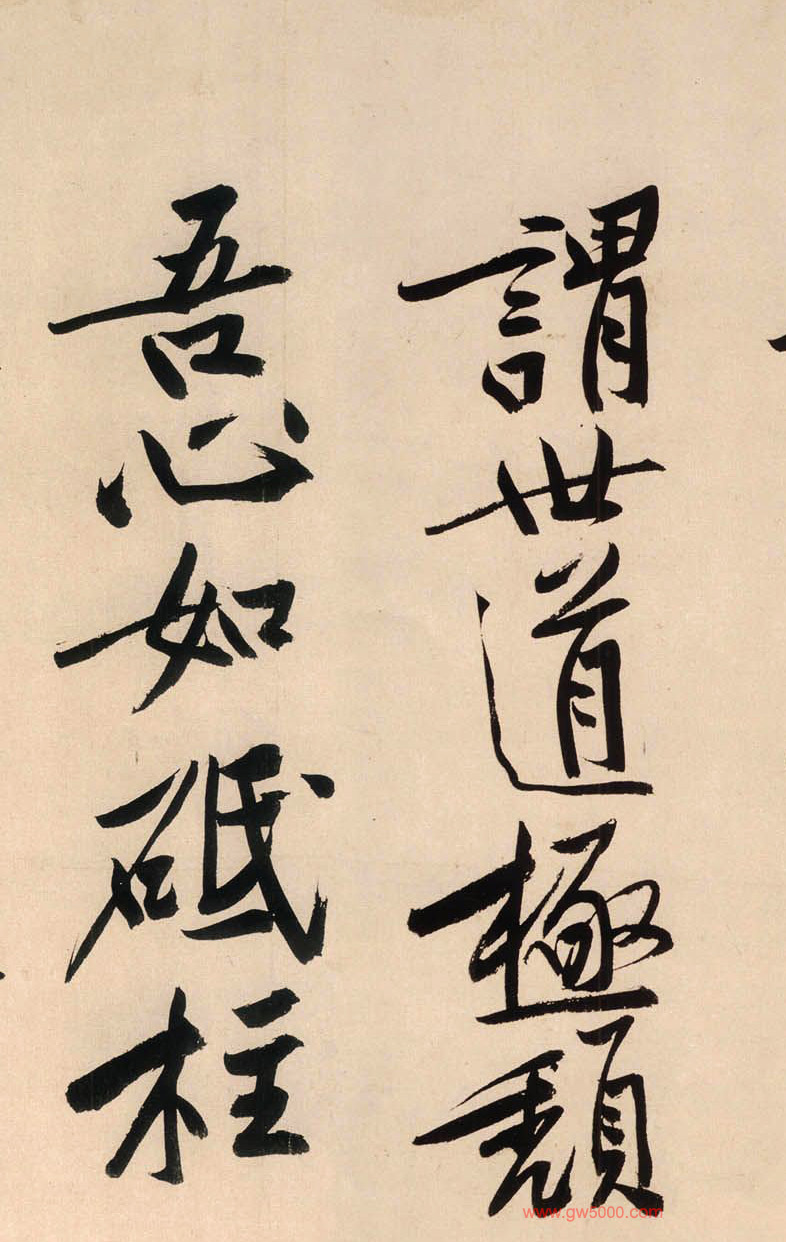 謂世道極頹
吾心如砥柱
www.gw5000.com